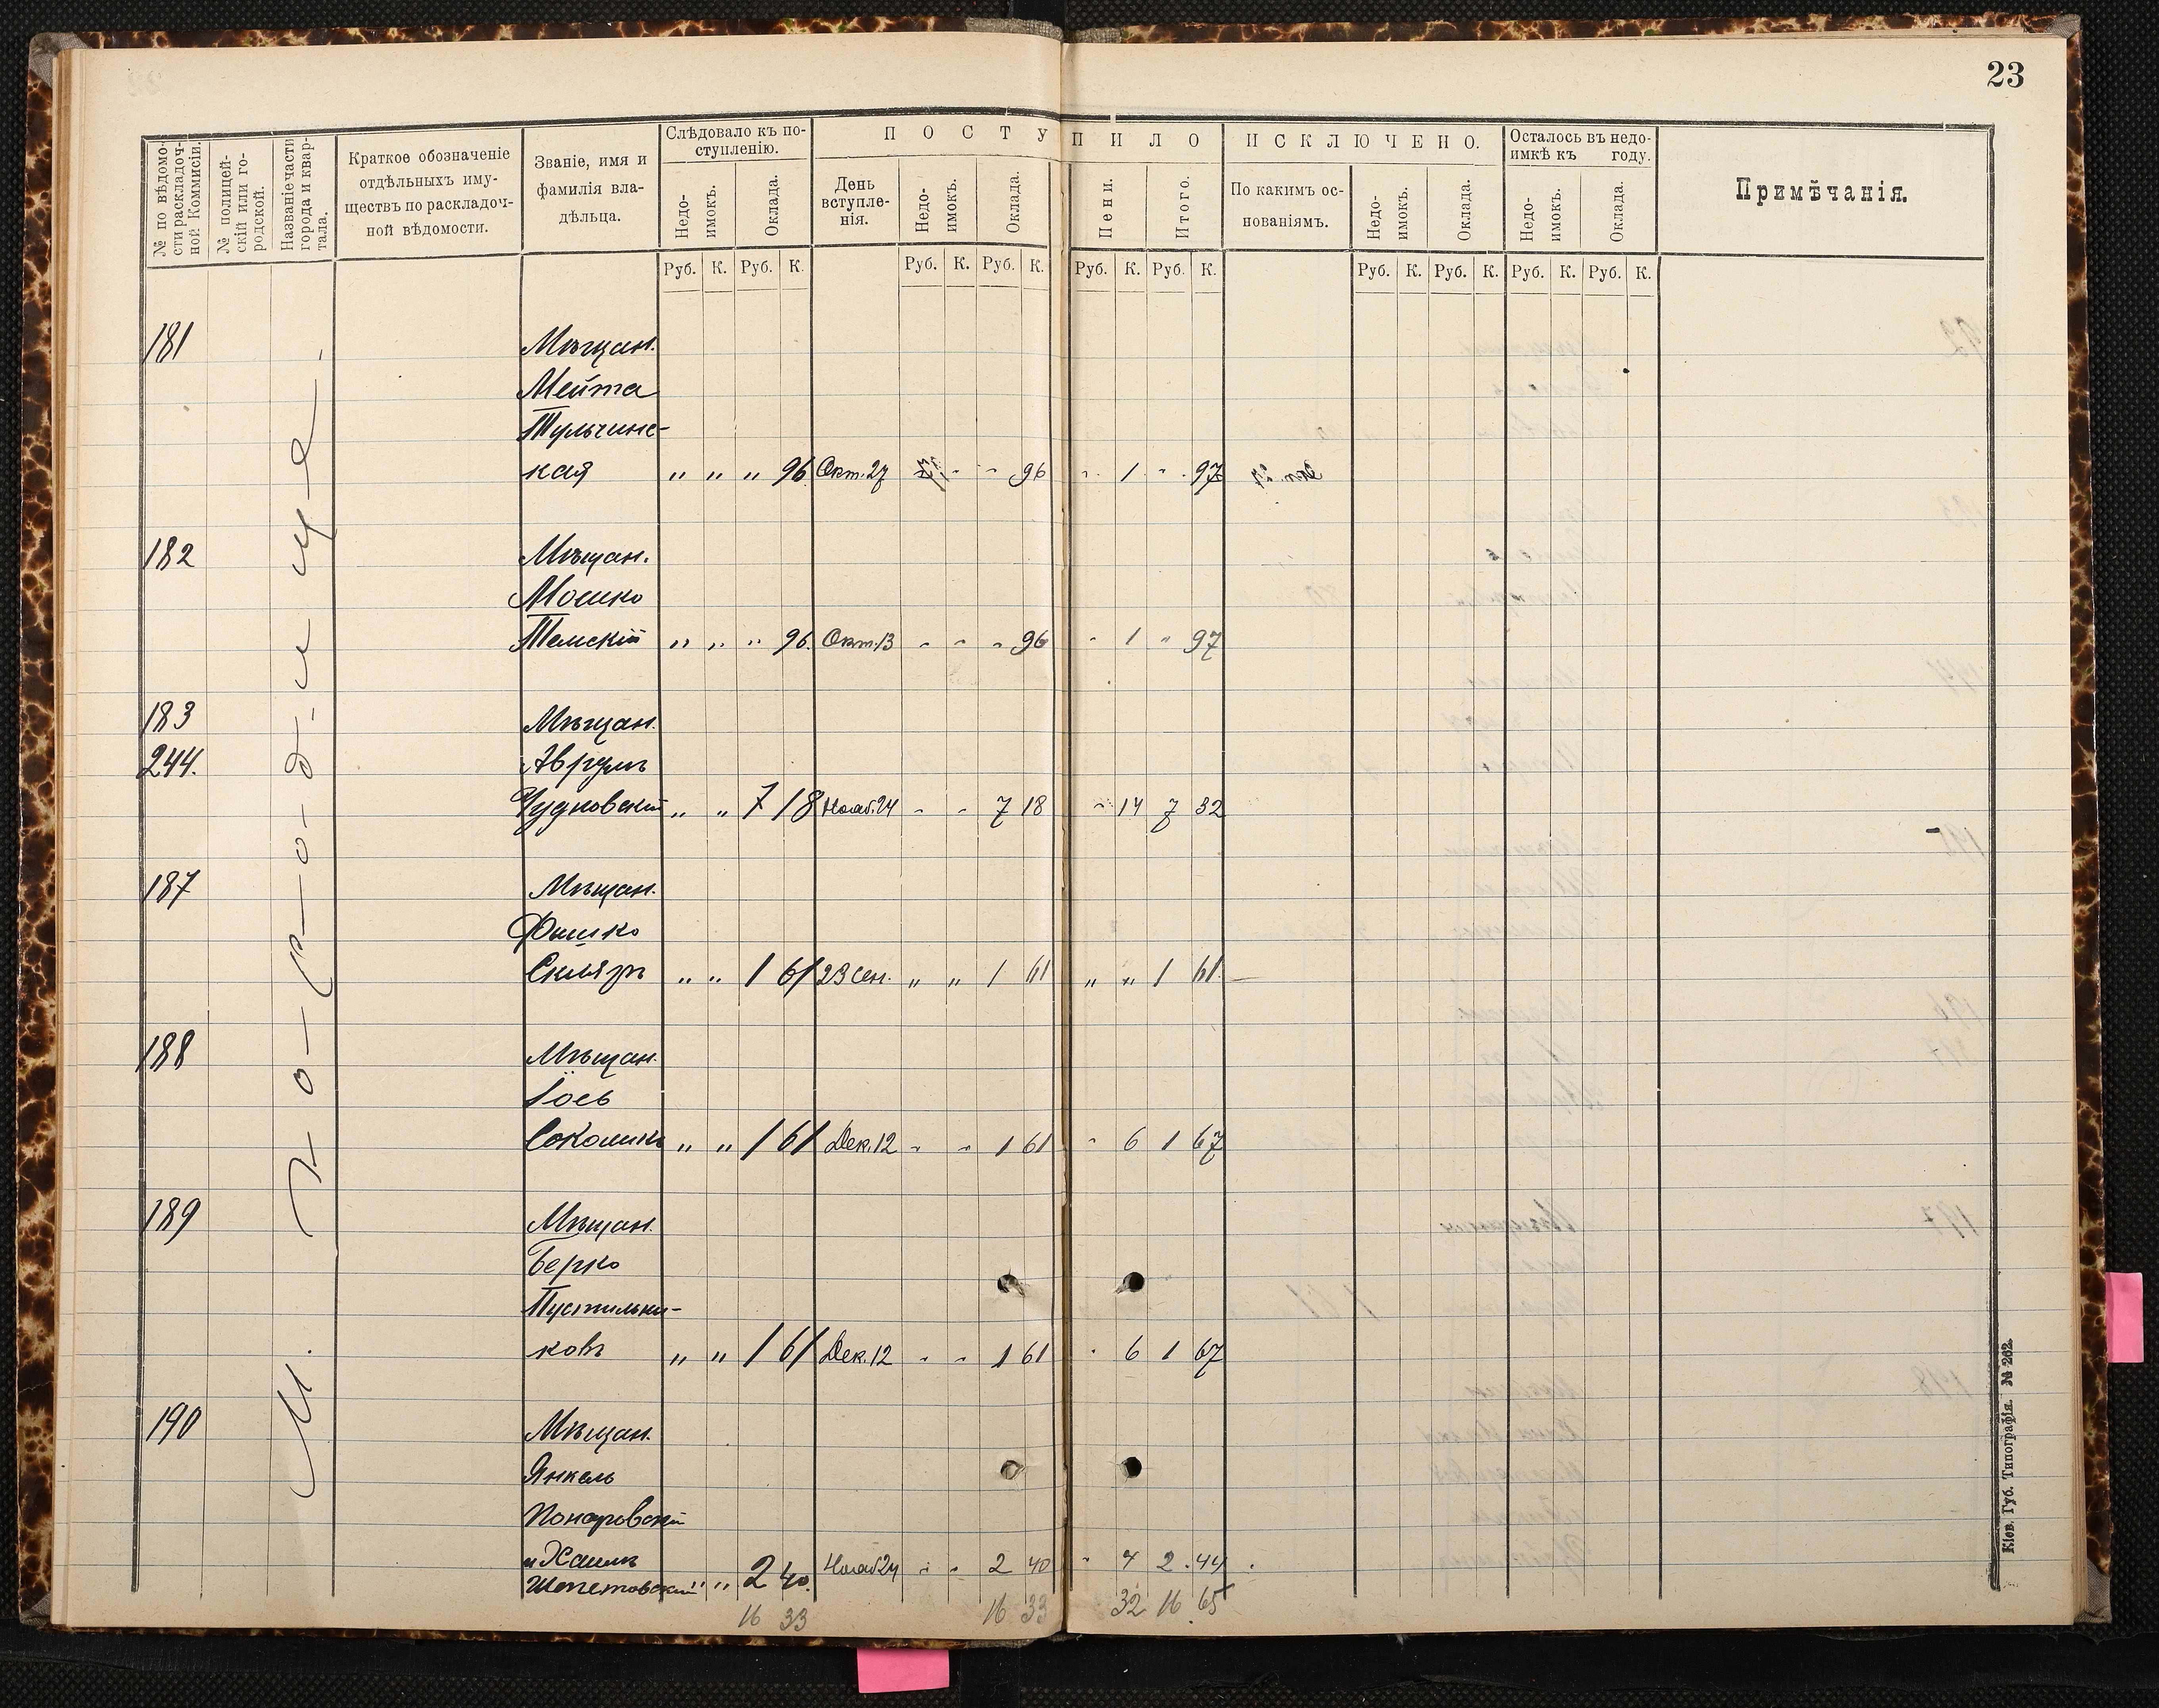 23
№ по вѣдомо-
сти раскладоч-
ной Коммисіи.
№ полицей-
скій или го-
родской.
Названіе части
города и квар-
тала.
Краткое обозначеніе
отдѣльныхъ иму-
ществъ по раскладоч-
ной вѣдомости.
Званіе, имя и
фамилія вла-
дѣльца.
Слѣдовало къ по-
ступленію.
Недо-
имокъ.
Оклада.
ПОСТУПИЛО
День
вступле-
нія.
Недо-
имокъ.
Оклада.
Пени.
Итого.
ИСКЛЮЧЕНО.
По какимъ ос-
нованіямъ.
Недо-
имокъ.
Оклада.
Осталось въ недо-
имкѣ къ году.
Недо-
имокъ.
Оклада.
Примѣчанія.
Руб. К. Руб. К. Руб. К. Руб. К. Руб. К. Руб. К. Руб. К. Руб. К. Руб. К. Руб. К.
181 Мѣщан.
Мейта
Тульчинс-
кая „ „ „ 96 Окт. 27 - - 96 - 1 - 97
182 Мѣщан.
Мошко
Темскій „ „ „ 96. Окт. 13 - - - 96 - 1 " 97
183 Мѣщан.
244. Аврумъ
Чудновскій „ „ 7 18 Нояб. 24 - - 7 18 - 14 7 32
187 Мѣщан.
Фишко
Скляръ „ „ 1 61 23 Сен. „ „ 1 61 „ „ 1 61
188 Мѣщан.
Іось
„ „ 1 61 Дек. 12 - - 1 61 - 6 1 67
189 Мѣщан.
Берко
Пустильни-
ковъ „ „ 1 61 Дек. 12 - - 1 61 - 6 1 67
190 Мѣщан.
Янкель
и Хаимъ Нояб 24 - - 2 40 - 4 2.44
Шепетовскій „ „ 2 40.
16 33 16 33 32 16 65
Кіев. Губ. Типографія. № 262.